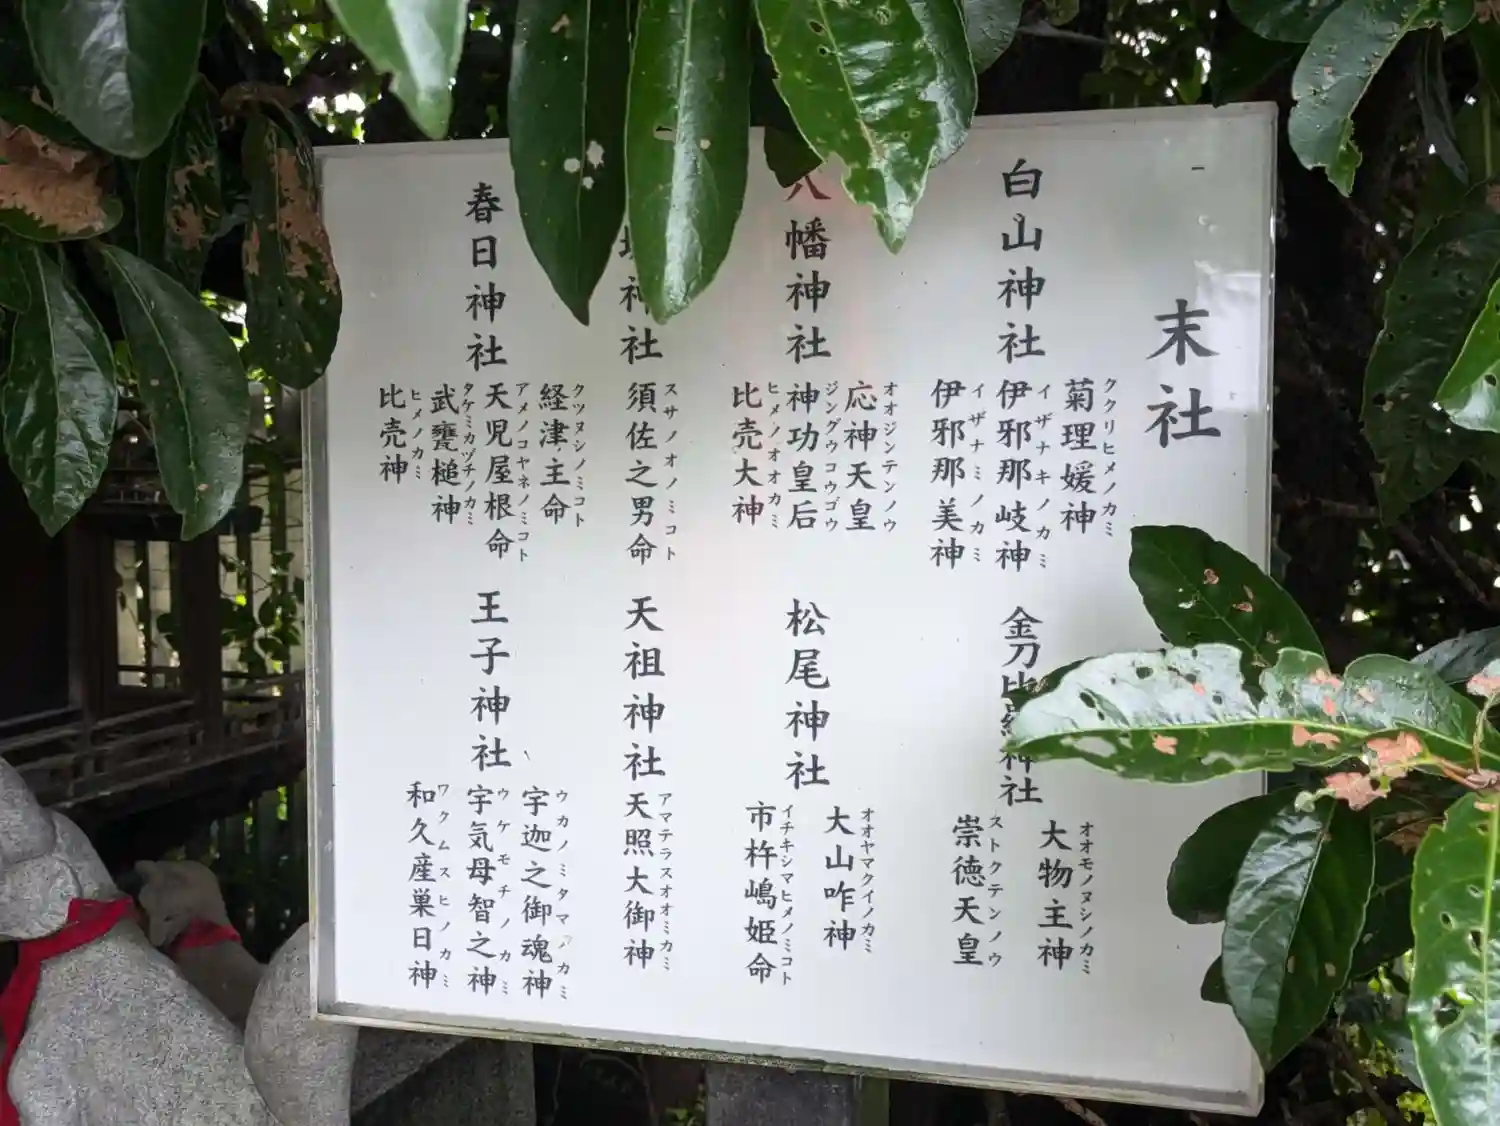 末社
白山神社
菊理媛神
ククリヒメノカミ
伊邪那岐神
イザナキノカミ
伊邪那美神
イザナミノカミ
八幡神社
応神天皇
オオジンテンノウ
神功皇后
ジングウコウゴウ
比売大神
ヒメノオオカミ
神社
須佐之男命
スサノオノミコト
春日神社
経津主命
クツヌシノミコト
天児屋根命
アメノコヤネノミコト
武甕槌神
タケミカヅチノカミ
比売神
ヒメノカミ
金刀比羅神社
大物主神
オオモノヌシノカミ
崇徳天皇
ストクテンノウ
松尾神社
大山咋神
オオヤマクイノカミ
市杵嶋姫命
イチキシマヒメノミコト
天祖神社
天照大御神
アマテラスオオミカミ
王子神社
宇迦之御魂神
ウカノミタマノカミ
宇気母智之神
ウケモチノカミ
和久産巣日神
ワクムスヒノカミ